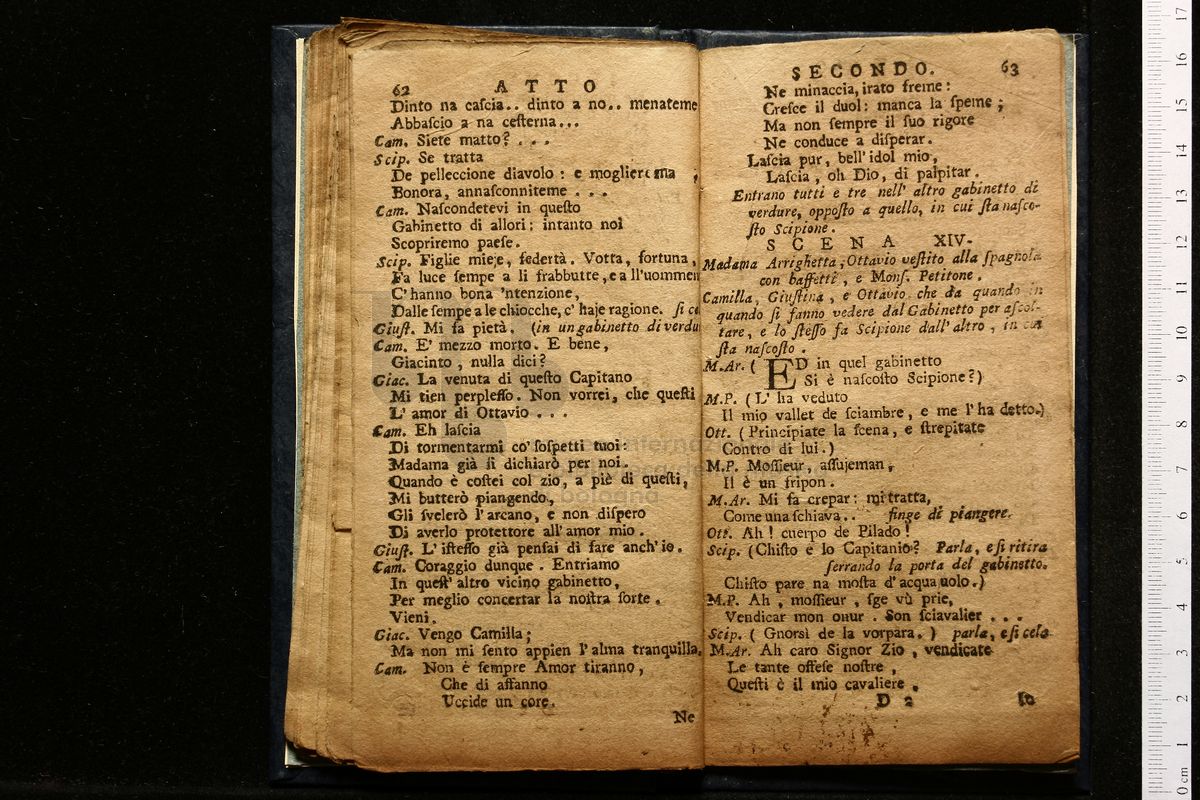 62 ATTO
Dinto na caſcia.. dinto a no.. menateme
Abbaſcio a na ceſterna...
Cam. Siete matto? . . .
Scip. Se tratta
De pelleccione diavolo : e moglierema ,
Bonora, annaſconniteme . . .
Cam. Naſcondetevi in queſto
Gabinetto di allori; intanto noi
Scopriremo paeſe.
Scip. Figlie mieje, federtà. Votta, fortuna,
Fa luce ſempe a li frabbutte, e a ll'uommen
C'hanno bona 'ntenzione,
Dalle ſempe a le chiocche, c' haje ragione. ſi ce
Giuſt. Mi fa pietà. (in un gabinetto di verdu
Cam. E' mezzo morto. E bene,
Giacinto , nulla dici?
Giac. La venuta di queſto Capitano
Mi tien perpleſſo. Non vorrei, che queſti
L' amor di Ottavio . . .
Cam. Eh laſcia
Di tormentarmi co' ſoſpetti tuoi:
Madama già ſi dichiarò per noi.
Quando è coſtei col zio, a piè di queſti,
Mi butterò piangendo,
Gli ſvelerò l'arcano, e non diſpero
Di averlo protettore all'amor mio.
Giuſt. L' iſteſſo già penſai di fare anch' io.
Cam. Coraggio dunque. Entriamo
In queſt' altro vicino gabinetto,
Per meglio concertar la noſtra ſorte.
Vieni.
Giac. Vengo Camilla;
Ma non mi ſento appien l'alma tranquilla.
Cam. Non è ſempre Amor tiranno,
Che di affanno
Uccide un core.
Ne
SECONDO. 63
Ne minaccia, irato freme:
Creſce il duol: manca la ſpeme;
Ma non ſempre il ſuo rigore
Ne conduce a diſperar.
Laſcia pur, bell'idol mio,
Laſcia, oh Dio, di palpitar.
Entrano tutti e tre nell' altro gabinetto di
verdure, oppoſto a quello, in cui ſta naſco-
ſto Scipione.
SCENA XIV.
Madama Arrighetta, Ottavio veſtito alla ſpagnola
con baffetti, e Monſ. Petitone.
Camilla, Giuſtina, e Ottavio che da quando in
quando ſi fanno vedere dal Gabinetto per aſcol-
tare, e lo ſteſſo fa Scipione dall' altro, in cui
ſta naſcoſto.
M.Ar. ( ED in quel gabinetto
Si è naſcoſto Scipione?)
M.P. (L' ha veduto
Il mio vallet de ſciambre, e me l'ha detto.)
Ott. (Principiate la ſcena, e ſtrepitate
Contro di lui.)
M.P. Moſſieur, aſſujeman,
Il è un fripon.
M.Ar. Mi fa crepar: mi tratta,
Come una ſchiava.. finge di piangere.
Ott. Ah! cuerpo de Pilado!
Scip. (Chiſto è lo Capitanio? Parla, e ſi ritira
ſerrando la porta del gabinetto.
Chiſto pare na moſta d' acquauolo.)
M.P. Ah, moſſieur, ſge vù prie,
Vendicar mon onur. Son ſciavalier . . .
Scip. ( Gnorsì de la vorpara. ) parla, e ſi cela
M.Ar. Ah caro Signor Zio, vendicate
Le tante offeſe noſtre,
Queſti è il mio cavaliere.
D 2 Io